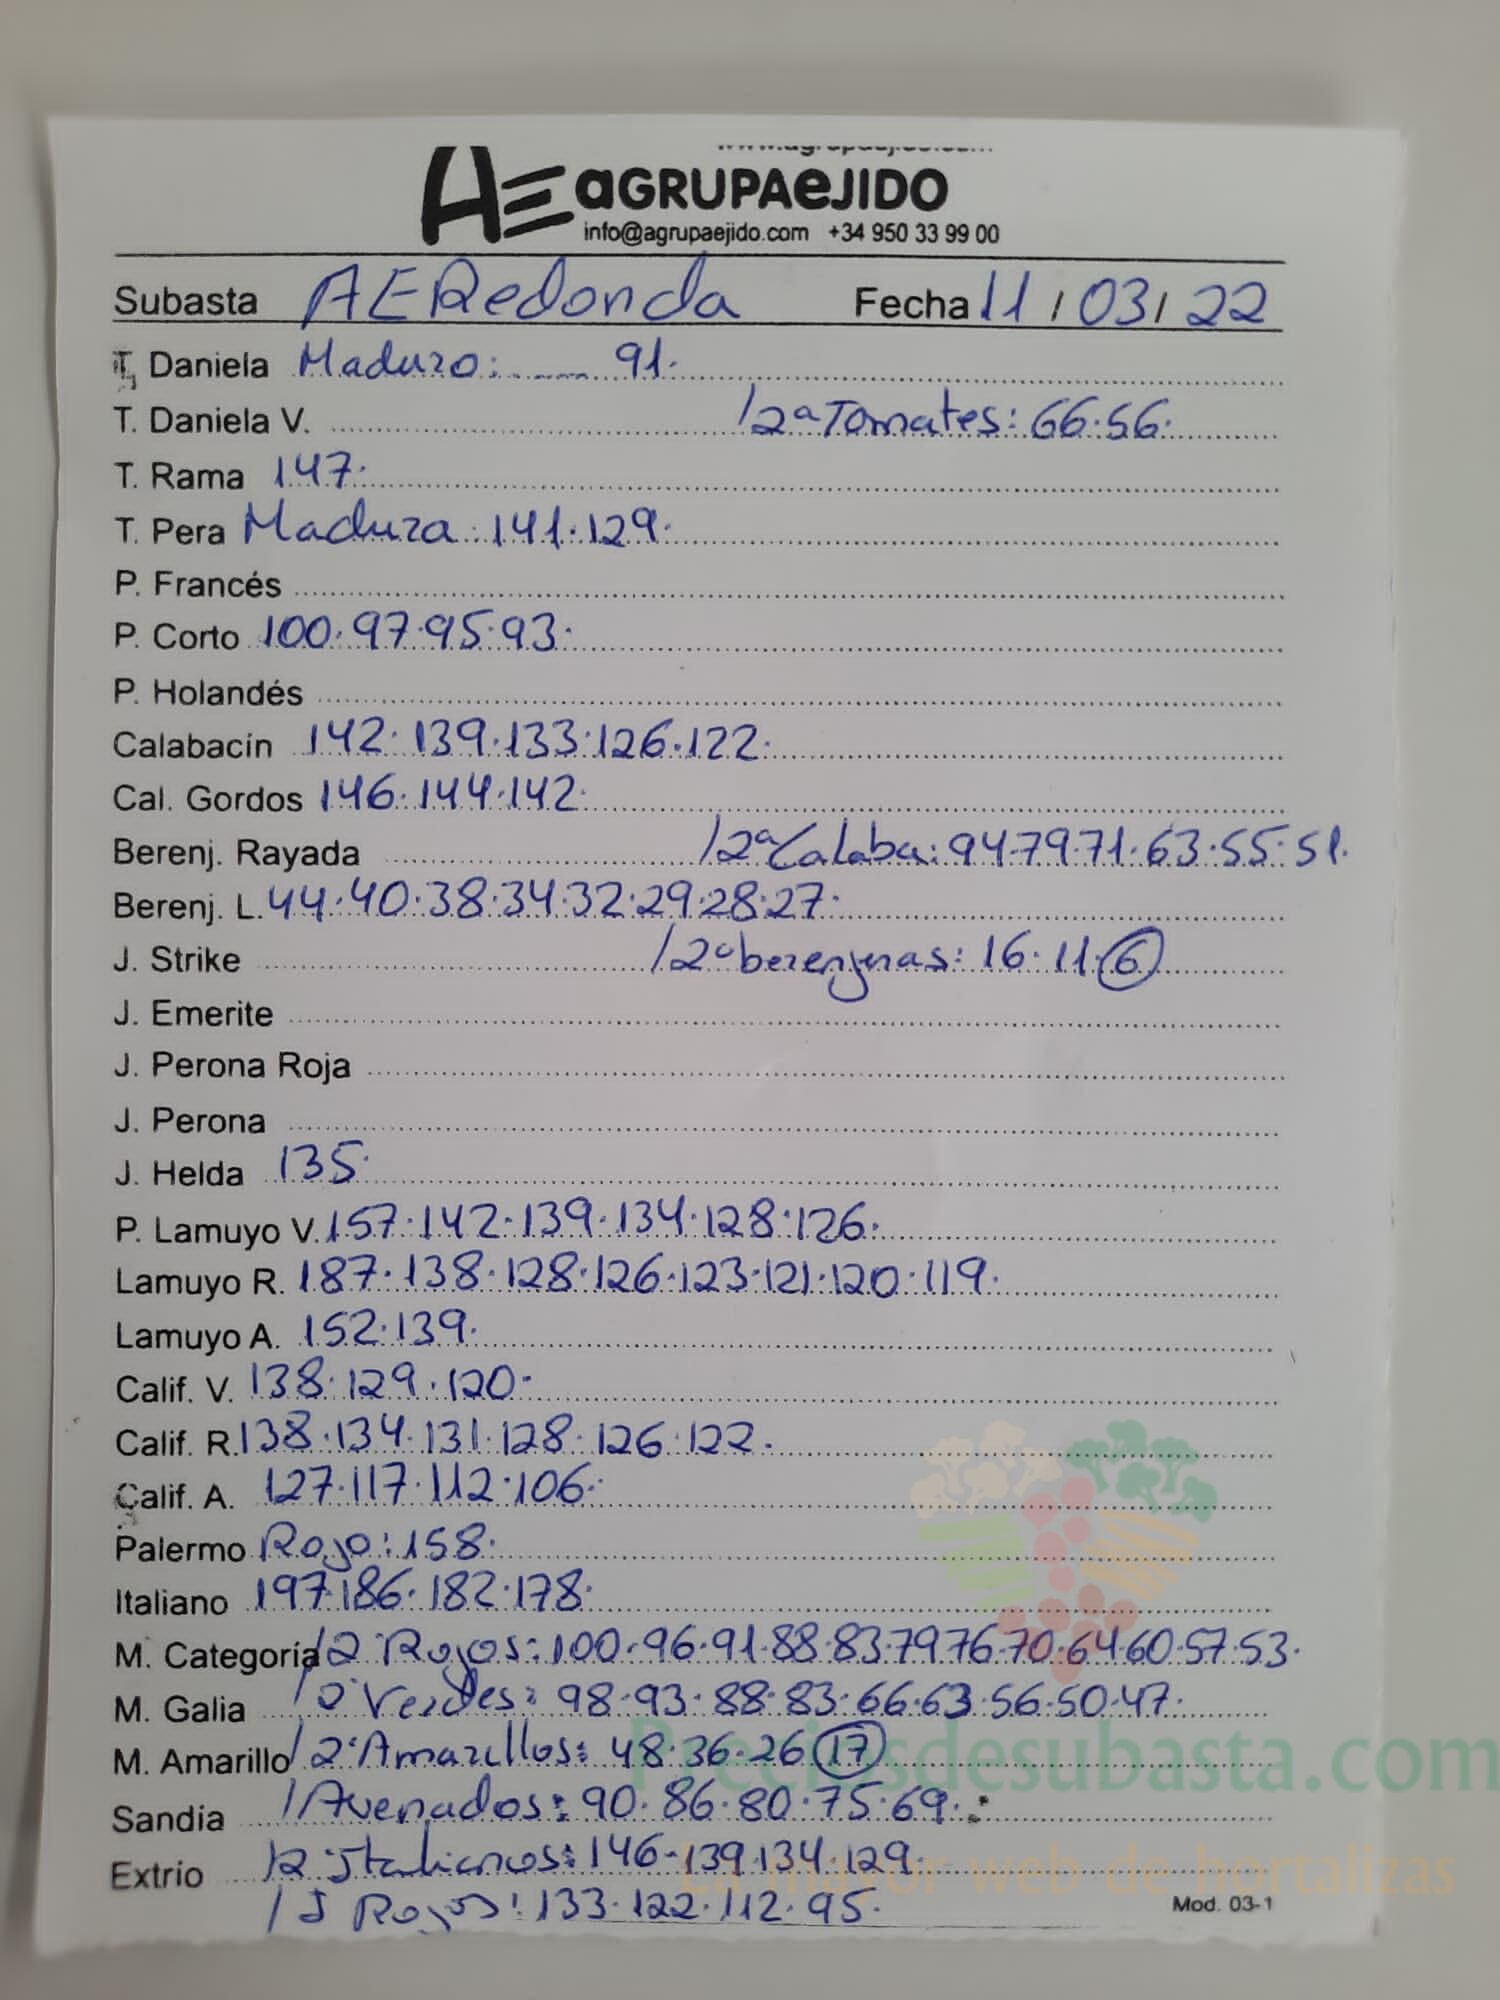 AE aGRUPAeJIDO
info@agrupaejido.com +34 950 33 99 00
Subasta AERedonda Fecha 11 / 03 / 22
T. Daniela Maduro: 91.
T. Daniela V. /2ª Tomates: 66.56.
T. Rama 147.
T. Pera Madura: 141.129.
P. Francés
P. Corto 100.97.95.93.
P. Holandés
Calabacín 142.139.133.126.122.
Cal. Gordos 146.144.142.
Berenj. Rayada /2ª Calaba: 94.79.71.63.55.51.
Berenj. L. 44.40.38.34.32.29.28.27.
J. Strike /2ª berenjenas: 16.11.6
J. Emerite
J. Perona Roja
J. Perona
J. Helda 135.
P. Lamuyo V. 157.142.139.134.128.126.
Lamuyo R. 187.138.128.126.123.121.120.119.
Lamuyo A. 152.139.
Calif. V. 138.129.120.
Calif. R. 138.134.131.128.126.122.
Calif. A. 127.117.112.106.
Palermo Rojo: 158.
Italiano 197.186.182.178.
M. Categoría /2ª Rojos: 100.96.91.88.83.79.76.70.64.60.57.53.
M. Galia /2ª Verdes: 98.93.88.83.66.63.56.50.47.
M. Amarillo /2ª Amarillos: 48.36.26 17
Preciosdesubasta.com
Sandia /Avenados: 90.86.80.75.69.
Extrio /2 Italianos: 146.139.134.129.
La mayor web de hortalizas
/J Rojos: 133.122.112.95.
Mod. 03-1